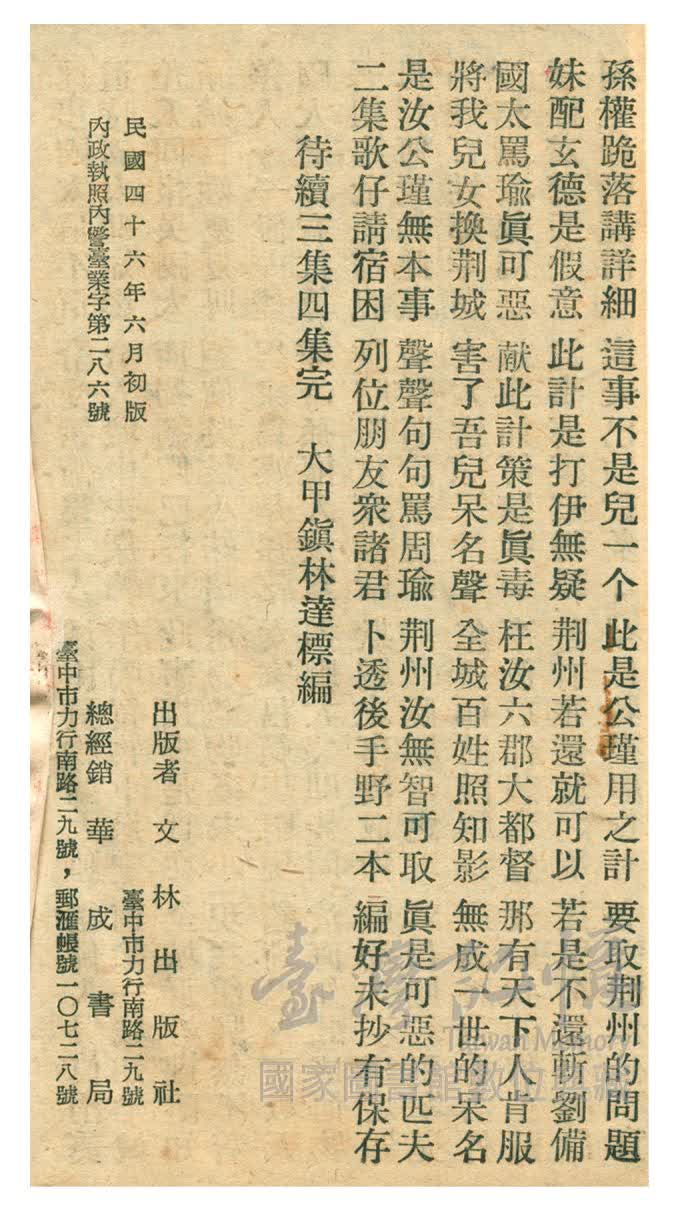 孫權跪落講詳細 這事不是兒一个 此是公瑾用之計 要取荆州的問題
妹配玄德是假意 此計是打伊無疑 荆州若還就可以 若是不還斬劉備
國太罵瑜眞可惡 献此計策是眞毒 枉汝六郡大都督 那有天下人肯服
將我兒女換荆城 害了吾兒呆名聲 全城百姓照知影 無成一世的呆名
是汝公瑾無本事 聲聲句句罵周瑜 荆州汝無智可取 眞是可惡的匹夫
二集歌仔請宿困 列位朋友衆諸君 卜透後手野二本 編好未抄有保存
待續三集四集完 大甲鎭林達標編
民國四十六年六月初版
內政執照內警臺業字第二八六號
出版者 文林出版社
臺中市力行南路二九號
總經銷 華成書局
臺中市力行南路二九號，郵滙帳號一〇七二八號
臺灣記憶
Taiwan Memory
國家圖書館數位典藏